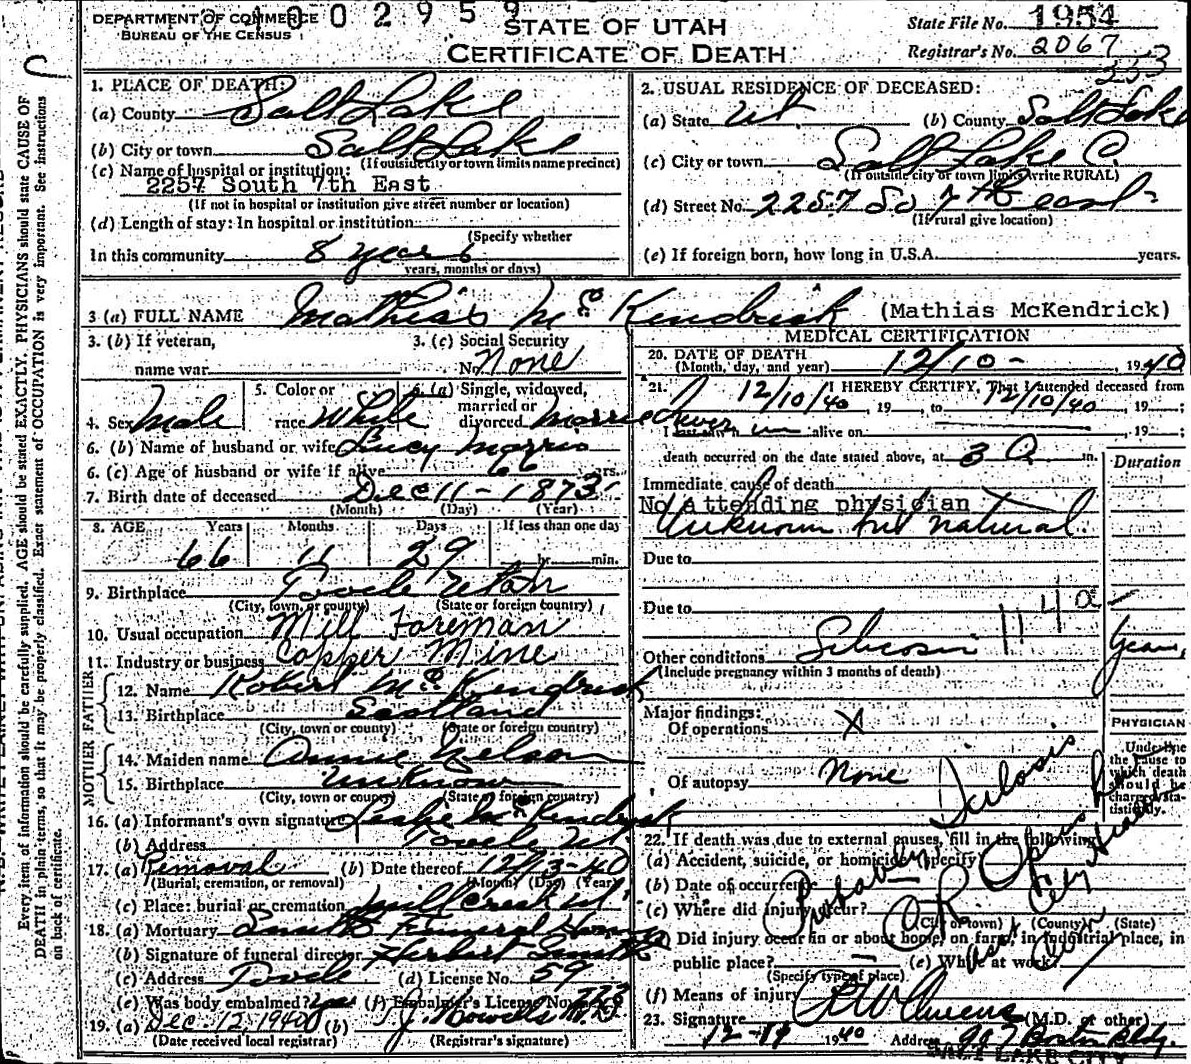 DEPARTMENT OF COMMERCE
BUREAU OF THE CENSUS
1002959
STATE OF UTAH
CERTIFICATE OF DEATH
State File No. 1954
Registrar's No. 2067
1. PLACE OF DEATH:
(a) County Salt Lake
(b) City or town Salt Lake
(If outside city or town limits name precinct)
(c) Name of hospital or institution:
2257 South 7th East
(If not in hospital or institution give street number or location)
(d) Length of stay: In hospital or institution
(Specify whether
In this community 8 years
years, months or days)
2. USUAL RESIDENCE OF DECEASED:
(a) State Ut. (b) County Salt Lake
(c) City or town Salt Lake C.
(If outside city or town limits write RURAL)
(d) Street No. 2257 So 7th east
(If rural give location)
(e) If foreign born, how long in U.S.A. years.
3 (a) FULL NAME Mathias McKendrick (Mathias McKendrick)
3. (b) If veteran,
name war
3. (c) Social Security
No. None
4. Sex Male
5. Color or
race White
6. (a) Single, widowed,
married or
divorced Married
6. (b) Name of husband or wife Lucy Morris
6. (c) Age of husband or wife if alive 66 yrs.
7. Birth date of deceased Dec 11 - 1873
(Month) (Day) (Year)
8. AGE Years Months Days If less than one day
66 11 29 hr. min.
9. Birthplace Tooele Utah
(City, town, or county) (State or foreign country)
10. Usual occupation Mill Foreman
11. Industry or business Copper Mine
FATHER
12. Name Robert McKendrick
13. Birthplace Scotland
(City, town or county) (State or foreign country)
MOTHER
14. Maiden name Annie Nelson
15. Birthplace Unknown
(City, town or county) (State or foreign country)
16. (a) Informant's own signature Leslie McKendrick
(b) Address Tooele Ut
17. (a) Removal (b) Date thereof 12/13-40
(Burial, cremation, or removal) (Month) (Day) (Year)
(c) Place: burial or cremation Mill Creek Ut
18. (a) Mortuary Smith Funeral Home
(b) Signature of funeral director Herbert Smith
(c) Address Tooele (d) License No. 59
(e) Was body embalmed? yes (f) Embalmer's License No.
19. (a) Dec. 12, 1940 (b) J. Howells M.D.
(Date received local registrar) (Registrar's signature)
MEDICAL CERTIFICATION
20. DATE OF DEATH 12/10- 1940
(Month, day, and year)
21. I HEREBY CERTIFY, That I attended deceased from
12/10/40, 19 , to 12/10/40, 19 ;
I last saw him alive on , 19 ;
death occurred on the date stated above, at 3 a m.
Duration
Immediate cause of death
No attending physician
Unknown but natural.
Due to
Due to
114a
Other conditions Silicosis years
(Include pregnancy within 3 months of death)
Major findings:
Of operations X
Of autopsy None
PHYSICIAN
Underline the cause to which death should be charged statistically.
22. If death was due to external causes, fill in the following:
(a) Accident, suicide, or homicide (specify)
(b) Date of occurrence
(c) Where did injury occur?
(City or town) (County) (State)
Did injury occur in or about home, on farm, in industrial place, in
public place? (e) While at work?
(Specify type of place)
(f) Means of injury
Probably
23. Signature (M.D. or other)
12-11 1940 Address Boston Bldg.
SALT LAKE CITY
Every item of information should be carefully supplied. AGE should be stated EXACTLY. PHYSICIANS should state CAUSE OF
DEATH in plain terms, so that it may be properly classified. Exact statement of OCCUPATION is very important. See instructions
on back of certificate.